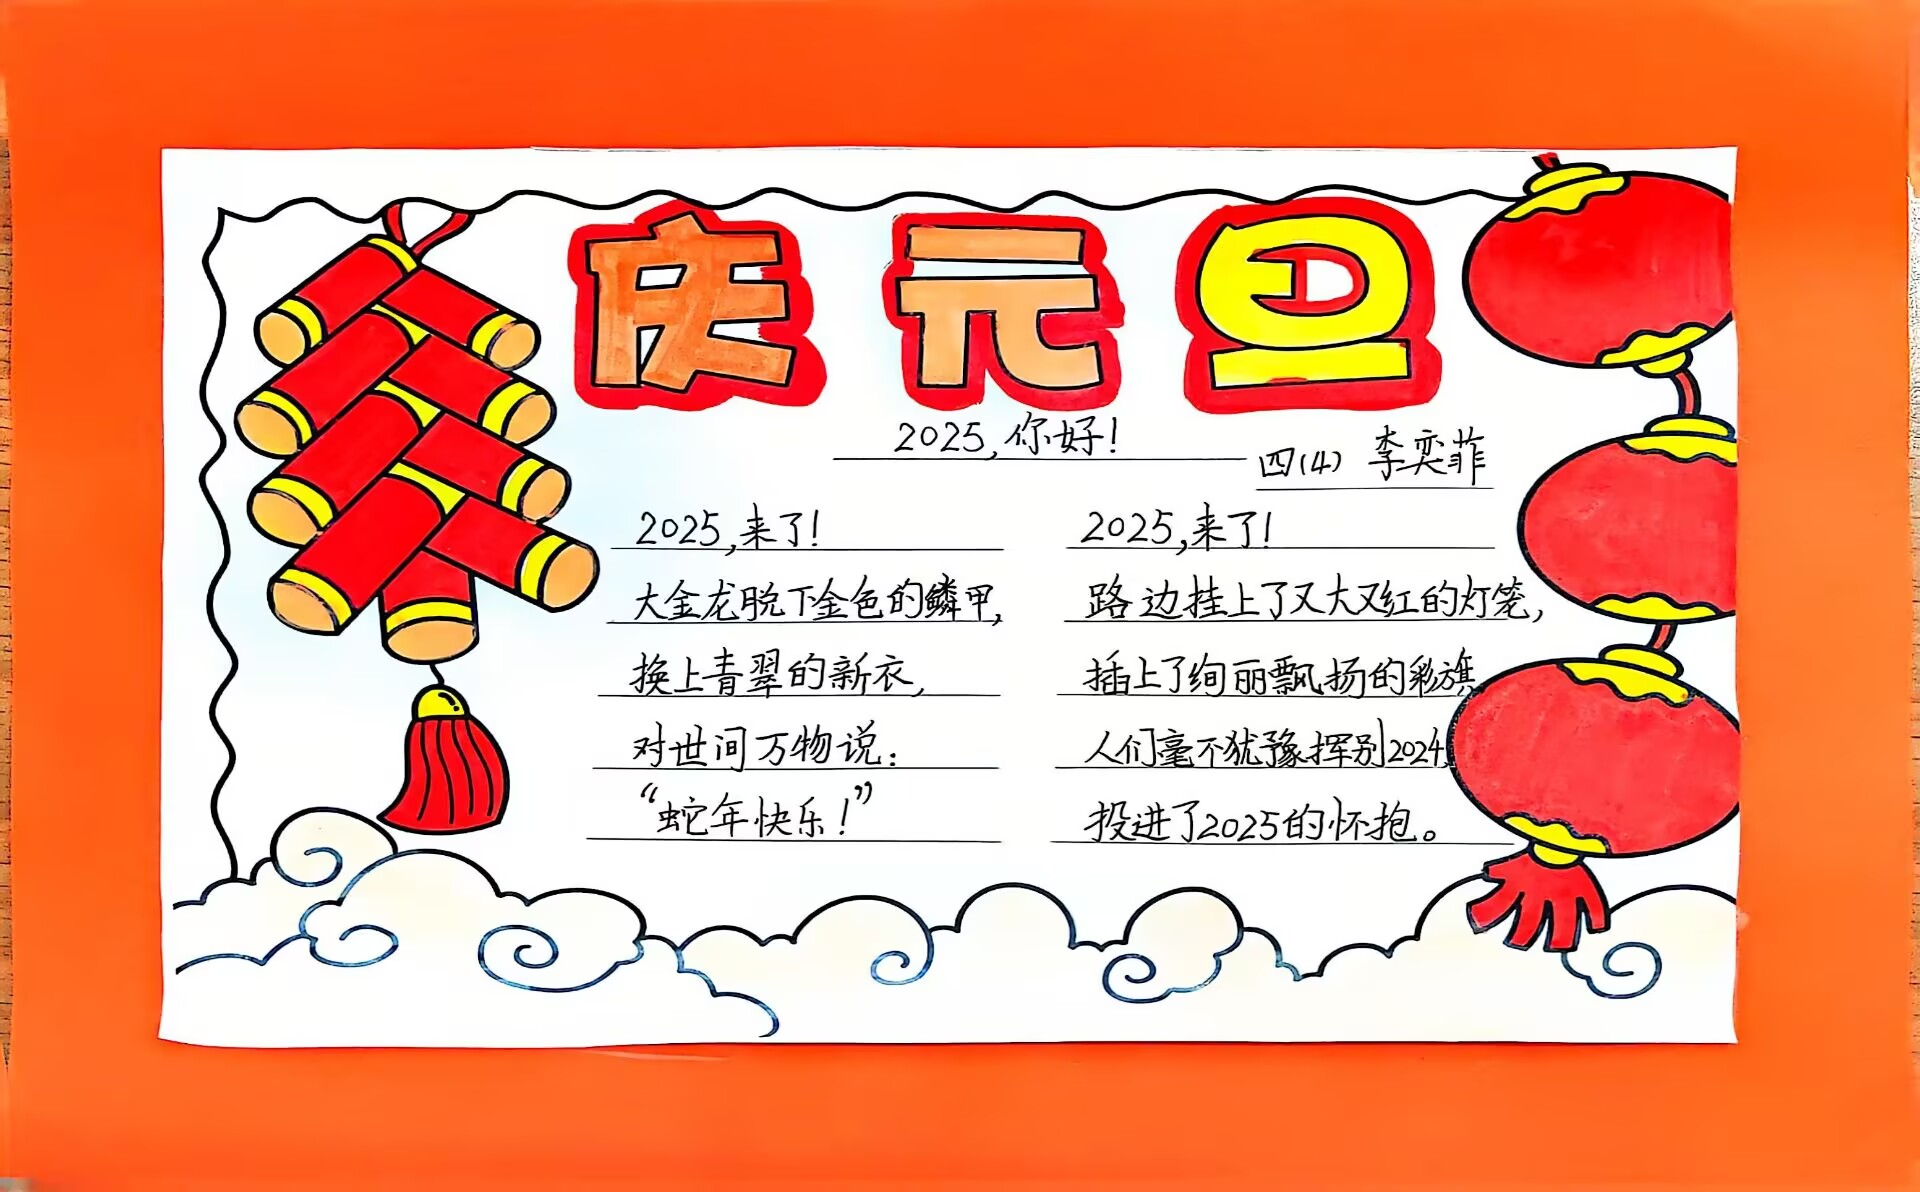 庆元旦
2025,你好!
四(4) 李奕菲
2025,来了!
大金龙脱下金色的鳞甲,
换上青翠的新衣,
对世间万物说:
“蛇年快乐!”
2025,来了!
路边挂上了又大又红的灯笼,
插上了绚丽飘扬的彩旗
人们毫不犹豫挥别2024,
投进了2025的怀抱。